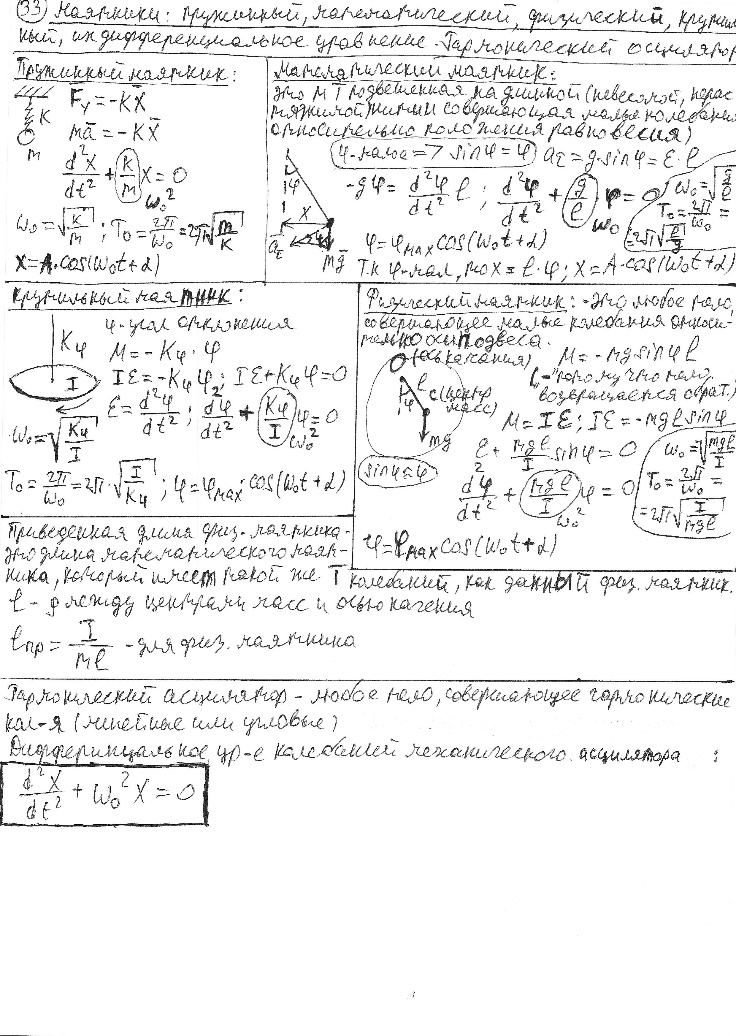 33) Маятники: пружинный, математический, физический, крутиль-
ный, их дифференциальное уравнение. Гармонический осцилятор
Пружинный маятник:
K
m
F̄у = -Kx̄
mā = -Kx̄
d²x/dt² + (K/m)x = 0
ω₀²
ω₀ = √(K/m); T₀ = 2π/ω₀ = 2π√(m/K)
X = A·cos(ω₀t+α)
Математический маятник:
это МТ подвешенная на длинной (невесомой, нерас
тяжимой нити и совершающая малые колебания
относительно положения равновесия)
φ-малое => sinφ = φ
aτ = g·sinφ = ε·l
l
φ
x
āτ
mḡ
-gφ = d²φ/dt² l; d²φ/dt² + (g/l)φ = 0
ω₀
ω₀ = √(g/l)
T₀ = 2π/ω₀ =
= 2π√(l/g)
φ = φmax cos(ω₀t+α)
Т.к φ-мал, то x = l·φ; X = A·cos(ω₀t+α)
Крутильный маятник:
Kφ
I
φ-угол отклонения
M = -Kφ·φ
Iε = -Kφφ; Iε+Kφφ = 0
ε = d²φ/dt²; d²φ/dt² + (Kφ/I)φ = 0
ω₀²
ω₀ = √(Kφ/I)
T₀ = 2π/ω₀ = 2π·√(I/Kφ); φ = φmax·cos(ω₀t+α)
Физический маятник: -это любое тело,
совершающее малые колебания относи-
тельно оси подвеса.
O (ось качания)
l
φ
C (центр
масс)
mg
sinφ=φ
M = -mg sinφ l
("-" потому что тело
возвращается обрат.)
M = Iε; Iε = -mgl sinφ
ε + (mgl/I) sinφ = 0
d²φ/dt² + (mgl/I)φ = 0
ω₀²
ω₀ = √(mgl/I)
T₀ = 2π/ω₀ =
= 2π√(I/mgl)
φ = φmax cos(ω₀t+α)
Приведенная длина физ. маятника-
это длина математического маят-
ника, который имеет такой же T колебаний, как данный физ. маятник.
l - ρ между центрами масс и осью качения
lпр = I/ml - для физ. маятника
Гармонический асцилятор - любое тело, совершающее гармонические
кол-я (линейные или угловые)
Диффиринцальное ур-е колебаний механического асцилятора :
d²x/dt² + ω₀²x = 0